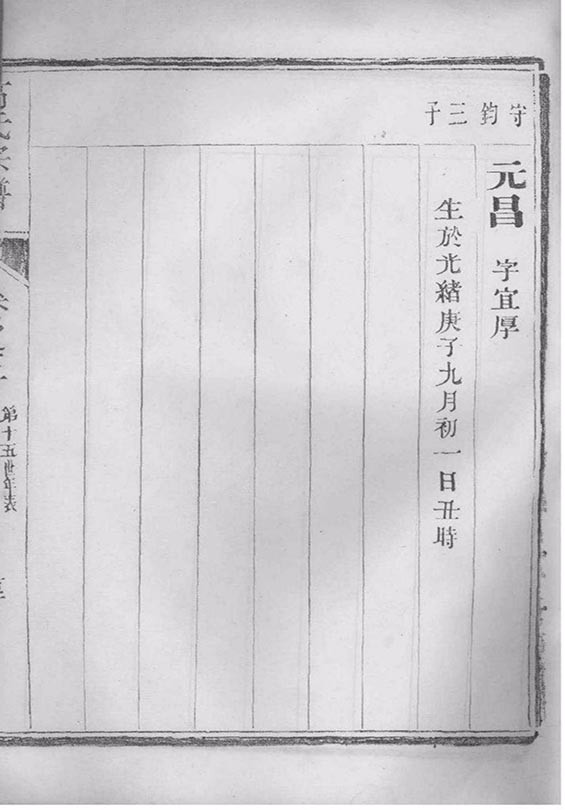 守鈞三子
元昌 字宜厚
生於光緒庚子九月初一日丑時
氏宗譜
第十五世年表